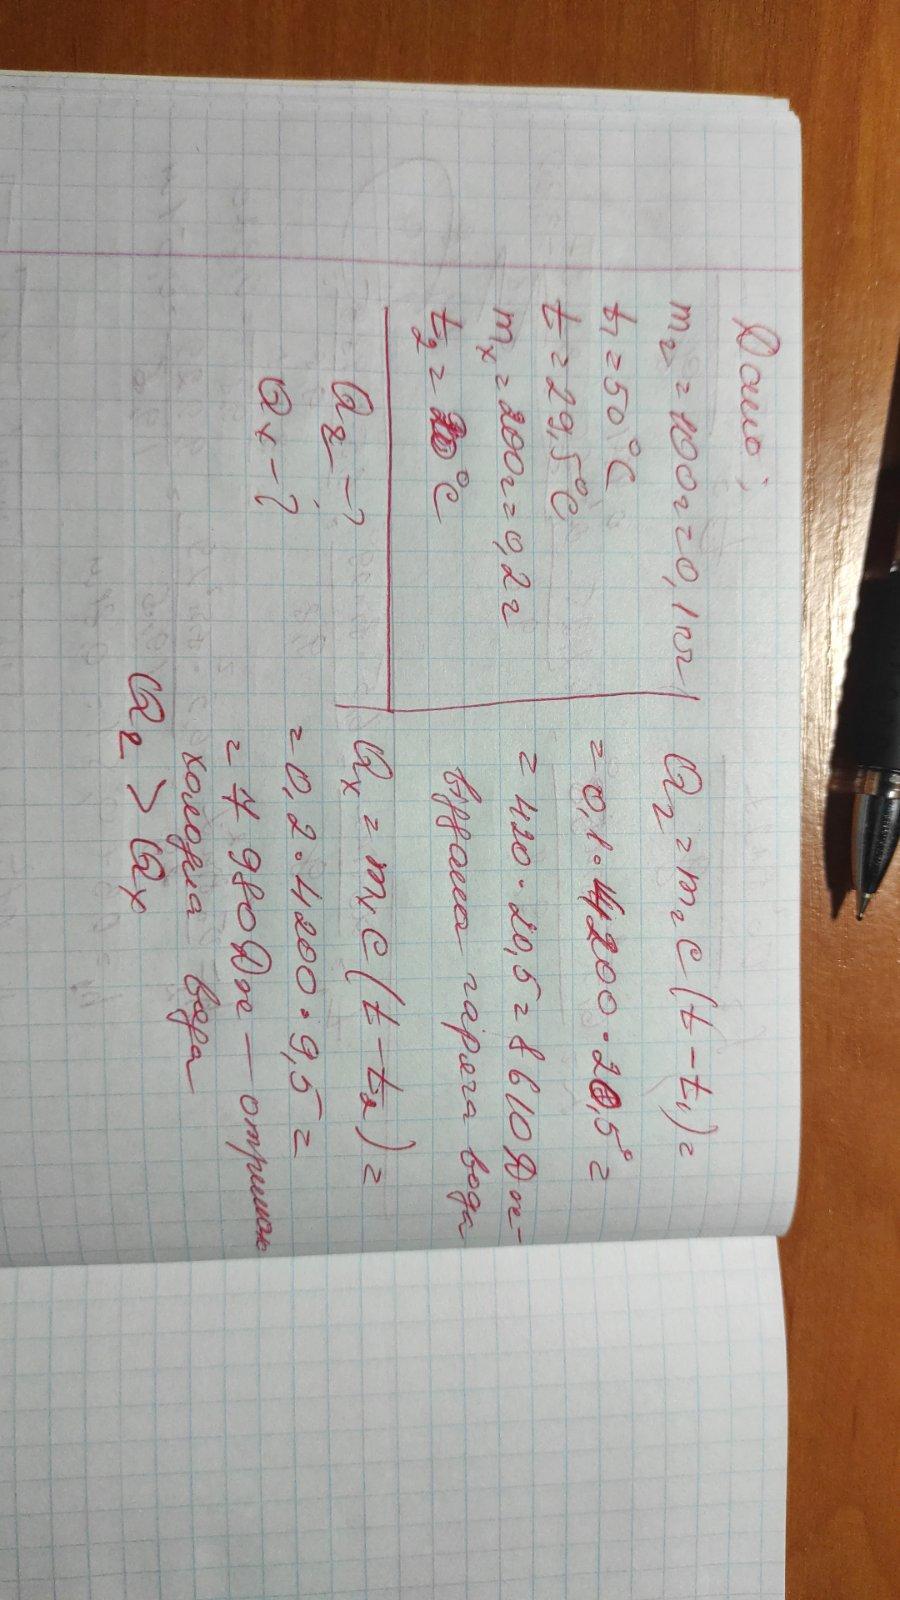 Дано:
mг = 100г = 0,1кг
t₁ = 50°C
t = 29,5°C
mх = 200г = 0,2г
t₂ = 20°C
Qг - ?
Qх - ?
Qг = mгc(t - t₁) =
= 0,1·4200·20,5° =
= 420·20,5 = 8610Дж -
віддала гаряча вода
Qх = mхc(t - t₂) =
= 0,2·4200·9,5 =
= 7980Дж — отримала
холодна вода
Qг > Qх